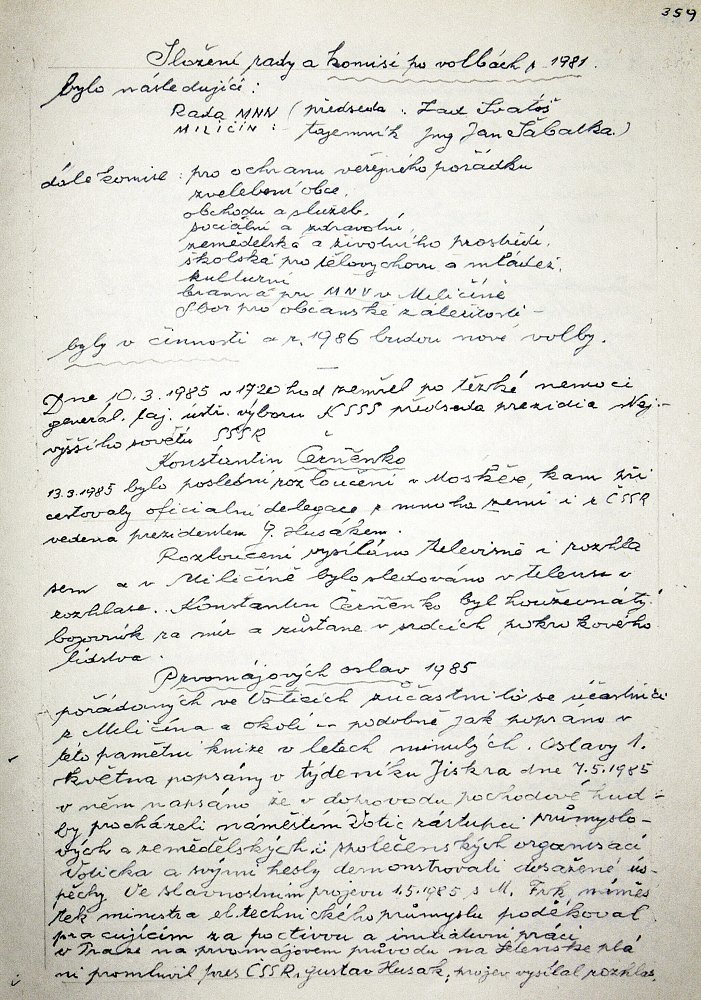 359
Složení rady a komisí po volbách r. 1981.
bylo následující:
Rada MNV (předseda. Lad Svatoš
MILIČÍN: - tajemník Ing Jan Šabatka.)
dále komise: pro ochranu veřejného pořádku
zvelebení obce,
obchodu a služeb,
sociální a zdravotní,
zemědělská a životního prostředí,
školská pro tělovýchovu a mládež,
kulturní
branná při MNV v Miličíně
Sbor pro občanské záležitosti -
byly v činnosti a r. 1986 budou nové volby.
Dne 10.3.1985 v 1720 hod zemřel po těžké nemoci
generál. taj. ústř. výboru KSSS předseda prezidia Nej-
vyššího sovětu SSSR
Konstantin Čerňěnko
13.3.1985 bylo poslední rozloučení v Moskvě, kam při
cestovaly oficialní delegace z mnoha zemí i z ČSSR
vedena prezidentem G. Husákem.
Rozloučení vysíláno televisně i rozhla
sem a v Miličíně bylo sledováno v televisi v
rozhlase. Konstantin Čerňěnko byl houževnatý
bojovník za mír a zůstane v srdcích pokrokového
lidstva.
Prvomájových oslav 1985
pořádaných ve Voticích zúčastnilo se účastníci
z Miličína a okolí -- podobně jak popsáno v
této pamětní knize v letech minulých. Oslavy 1.
května popsány v týdeníku Jiskra dne 7.5.1985
v něm napsáno že v doprovodu pochodové hud-
by procházeli náměstím Votic zástupci průmyslo-
vých a zemědělských i společenských organisací
Voticka a svými hesly demonstrovali dosažené ús-
pěchy. Ve slavnostním projevu 1.5.1985 s M. Frk, námes
tek ministra el.technického průmyslu poděkoval
pracujícím za poctivou a iniciativní práci
v Praze na prvomájovém průvodu na Letenské plá
ni promluvil pres ČSSR, Gustav Husák, projev vysílal rozhlas,